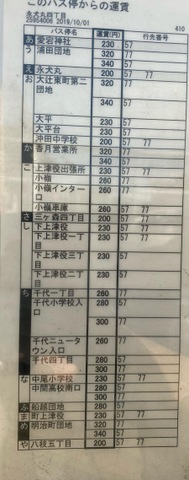 このバス停からの運賃
永犬丸四丁目
25954006 2019/10/01 410
バス停名 運賃(円) 行先番号
あ 愛宕神社 230 57
320 77
う 浦田団地 320 77
340 57
え 永犬丸 200 57 77
お 大辻東町第二団地 320 77
340 57
大平 230 57
大平台 230 57
沖田中学校 200 57 77
か 香月営業所 320 77
340 57
こ 上津役出張所 230 57 77
小嶺 260 57 77
小嶺インター口 260 57 77
小嶺車庫 260 57 77
さ 三ヶ森四丁目 200 57 77
し 下上津役 230 57 77
下上津役一丁目 230 57 77
下上津役三丁目 230 57
下上津役二丁目 230 57
ち 千代一丁目 260 77
千代小学校入口 280 57
300 77
千代ニュータウン入口 260 77
千代四丁目 280 57
300 77
な 中尾小学校 230 57 77
中間高校南口 280 57
300 77
ふ 船越団地 280 57
ま 町上津役 230 57 77
め 明治町団地 320 77
340 57
や 八枝五丁目 200 57 77